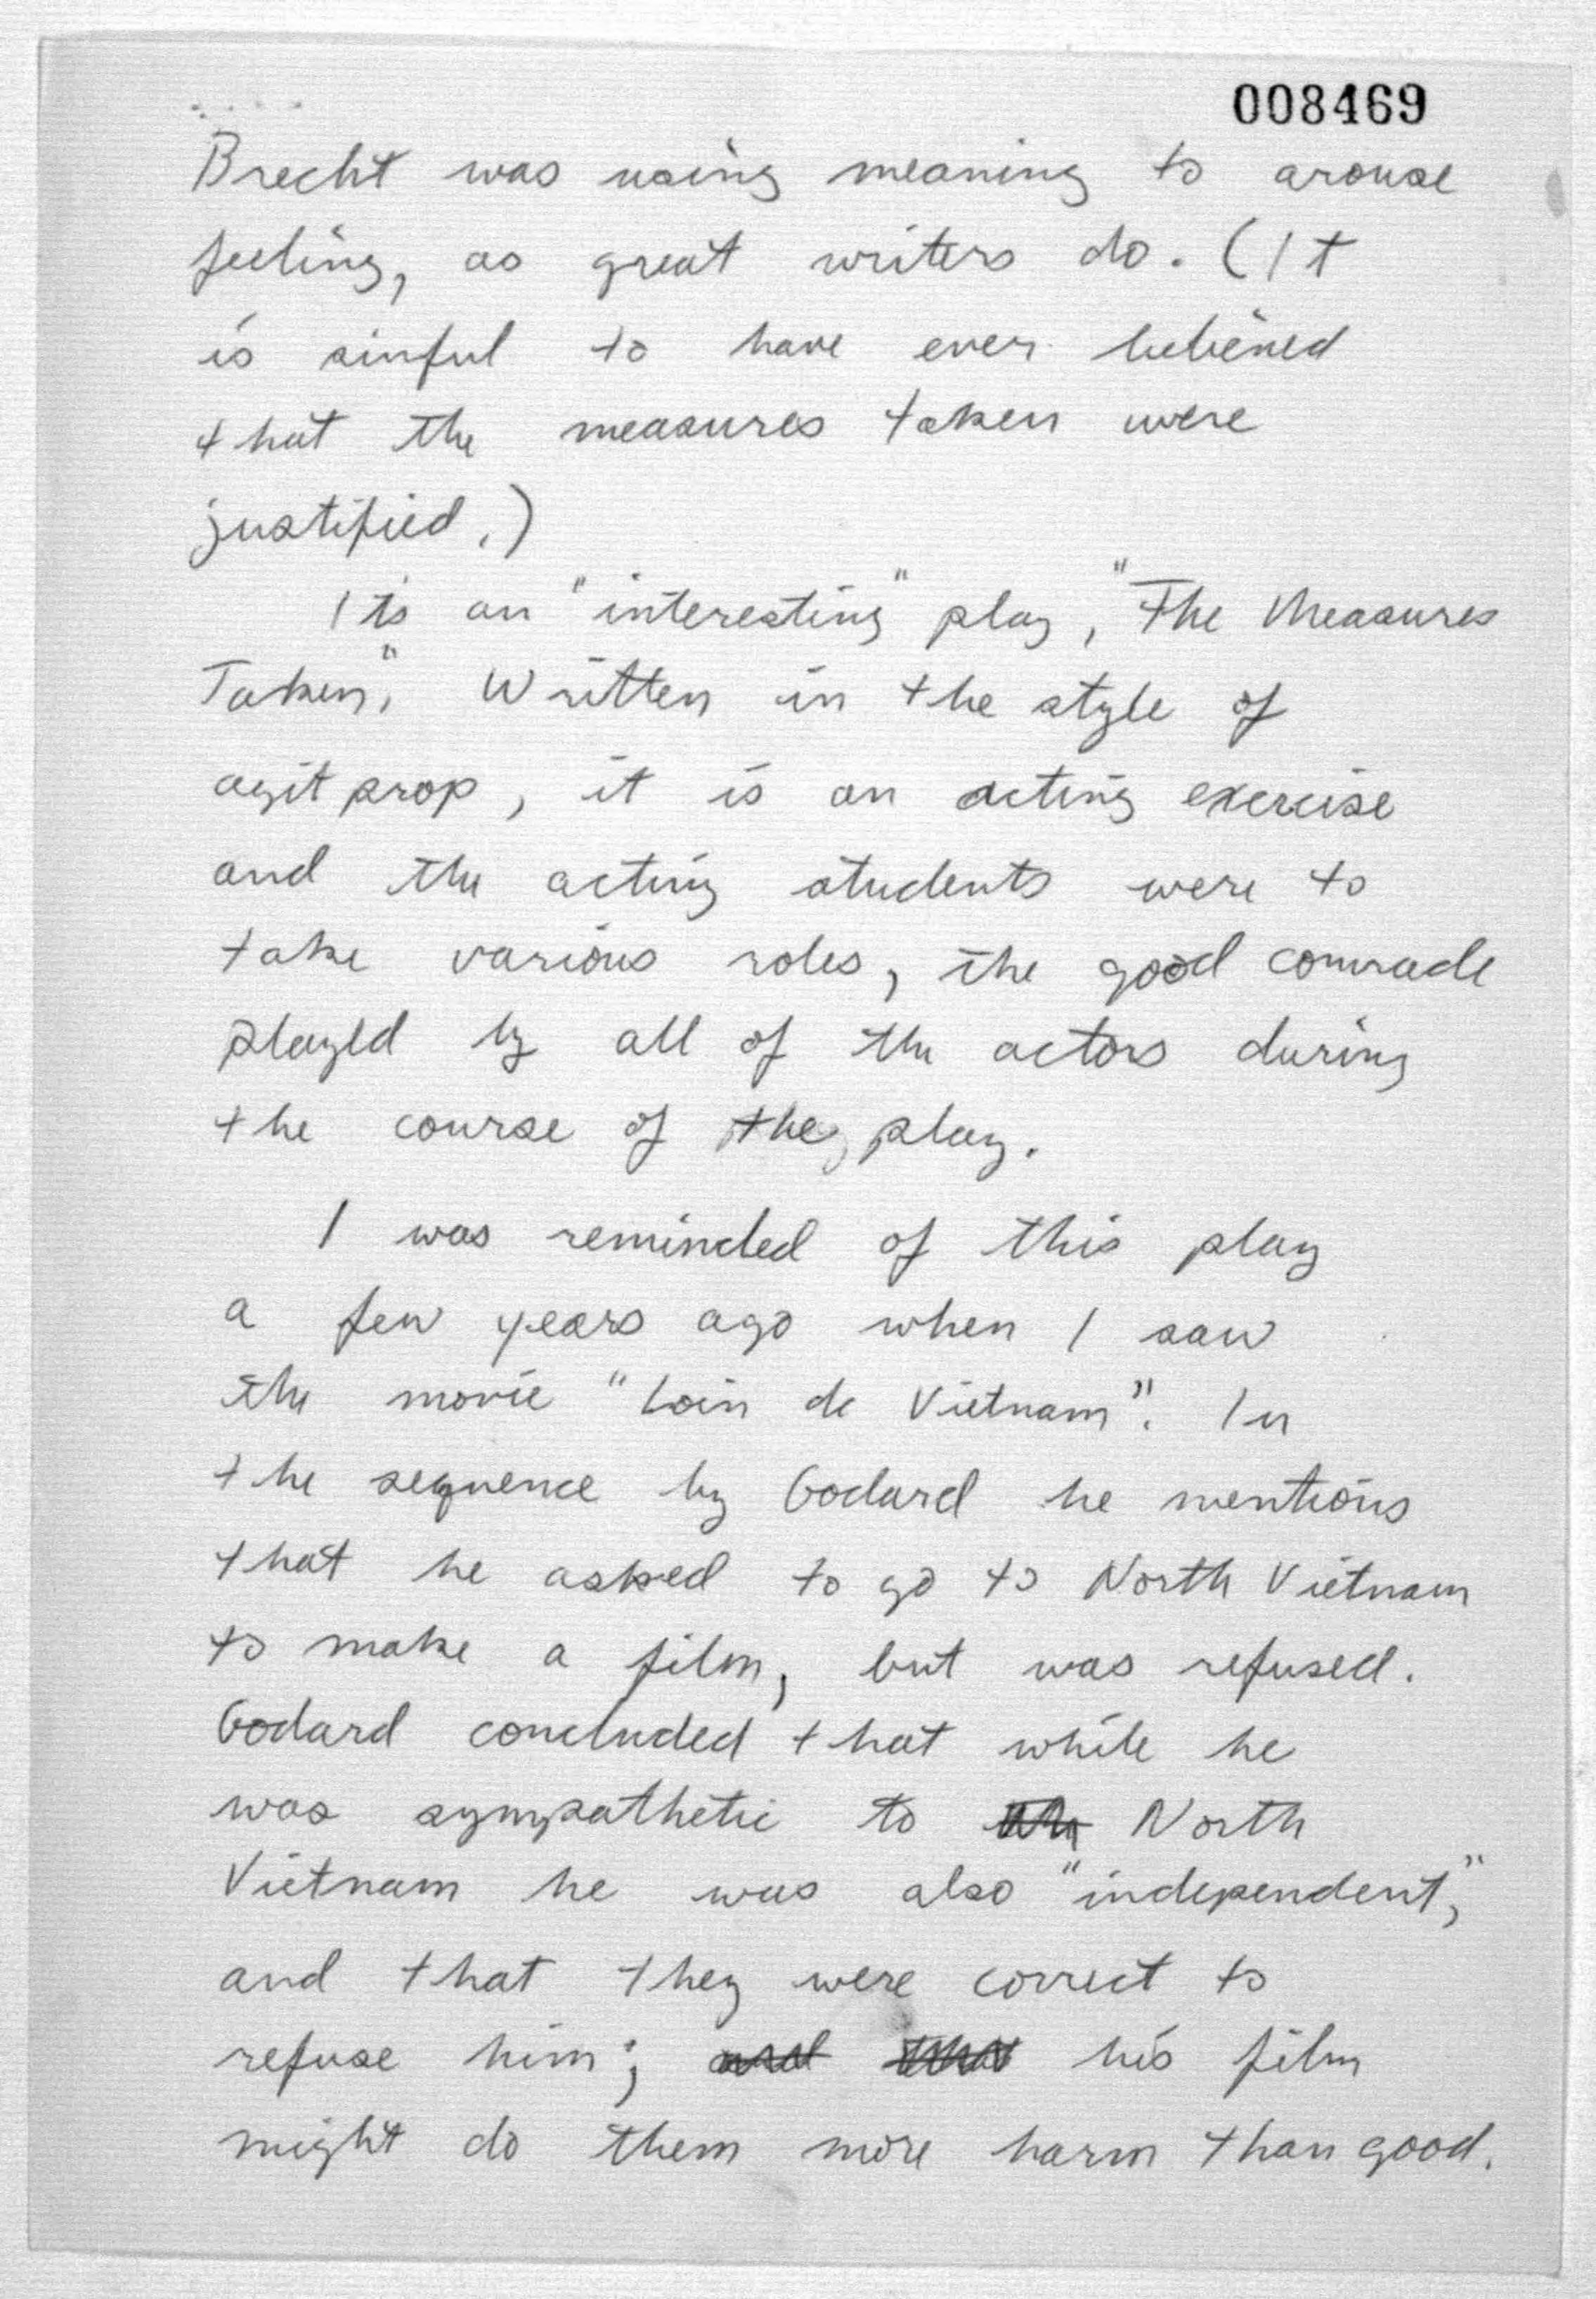 008469
Brecht was using meaning to arouse
feeling, as great writers do. (It
is sinful to have ever believed
that the measures taken were
justified.)
Its an "interesting" play, "The Measures
Taken". Written in the style of
agit prop, it is an acting exercise
and the acting students were to
take various roles, the good comrade
played by all of the actors during
the course of the play.
I was reminded of this play
a few years ago when I saw
the movie "Loin de Vietnam". In
the sequence by Godard he mentions
that he asked to go to North Vietnam
to make a film, but was refused.
Godard concluded that while he
was sympathetic to North
Vietnam he was also "independent,"
and that they were correct to
refuse him; and his film
might do them more harm than good.